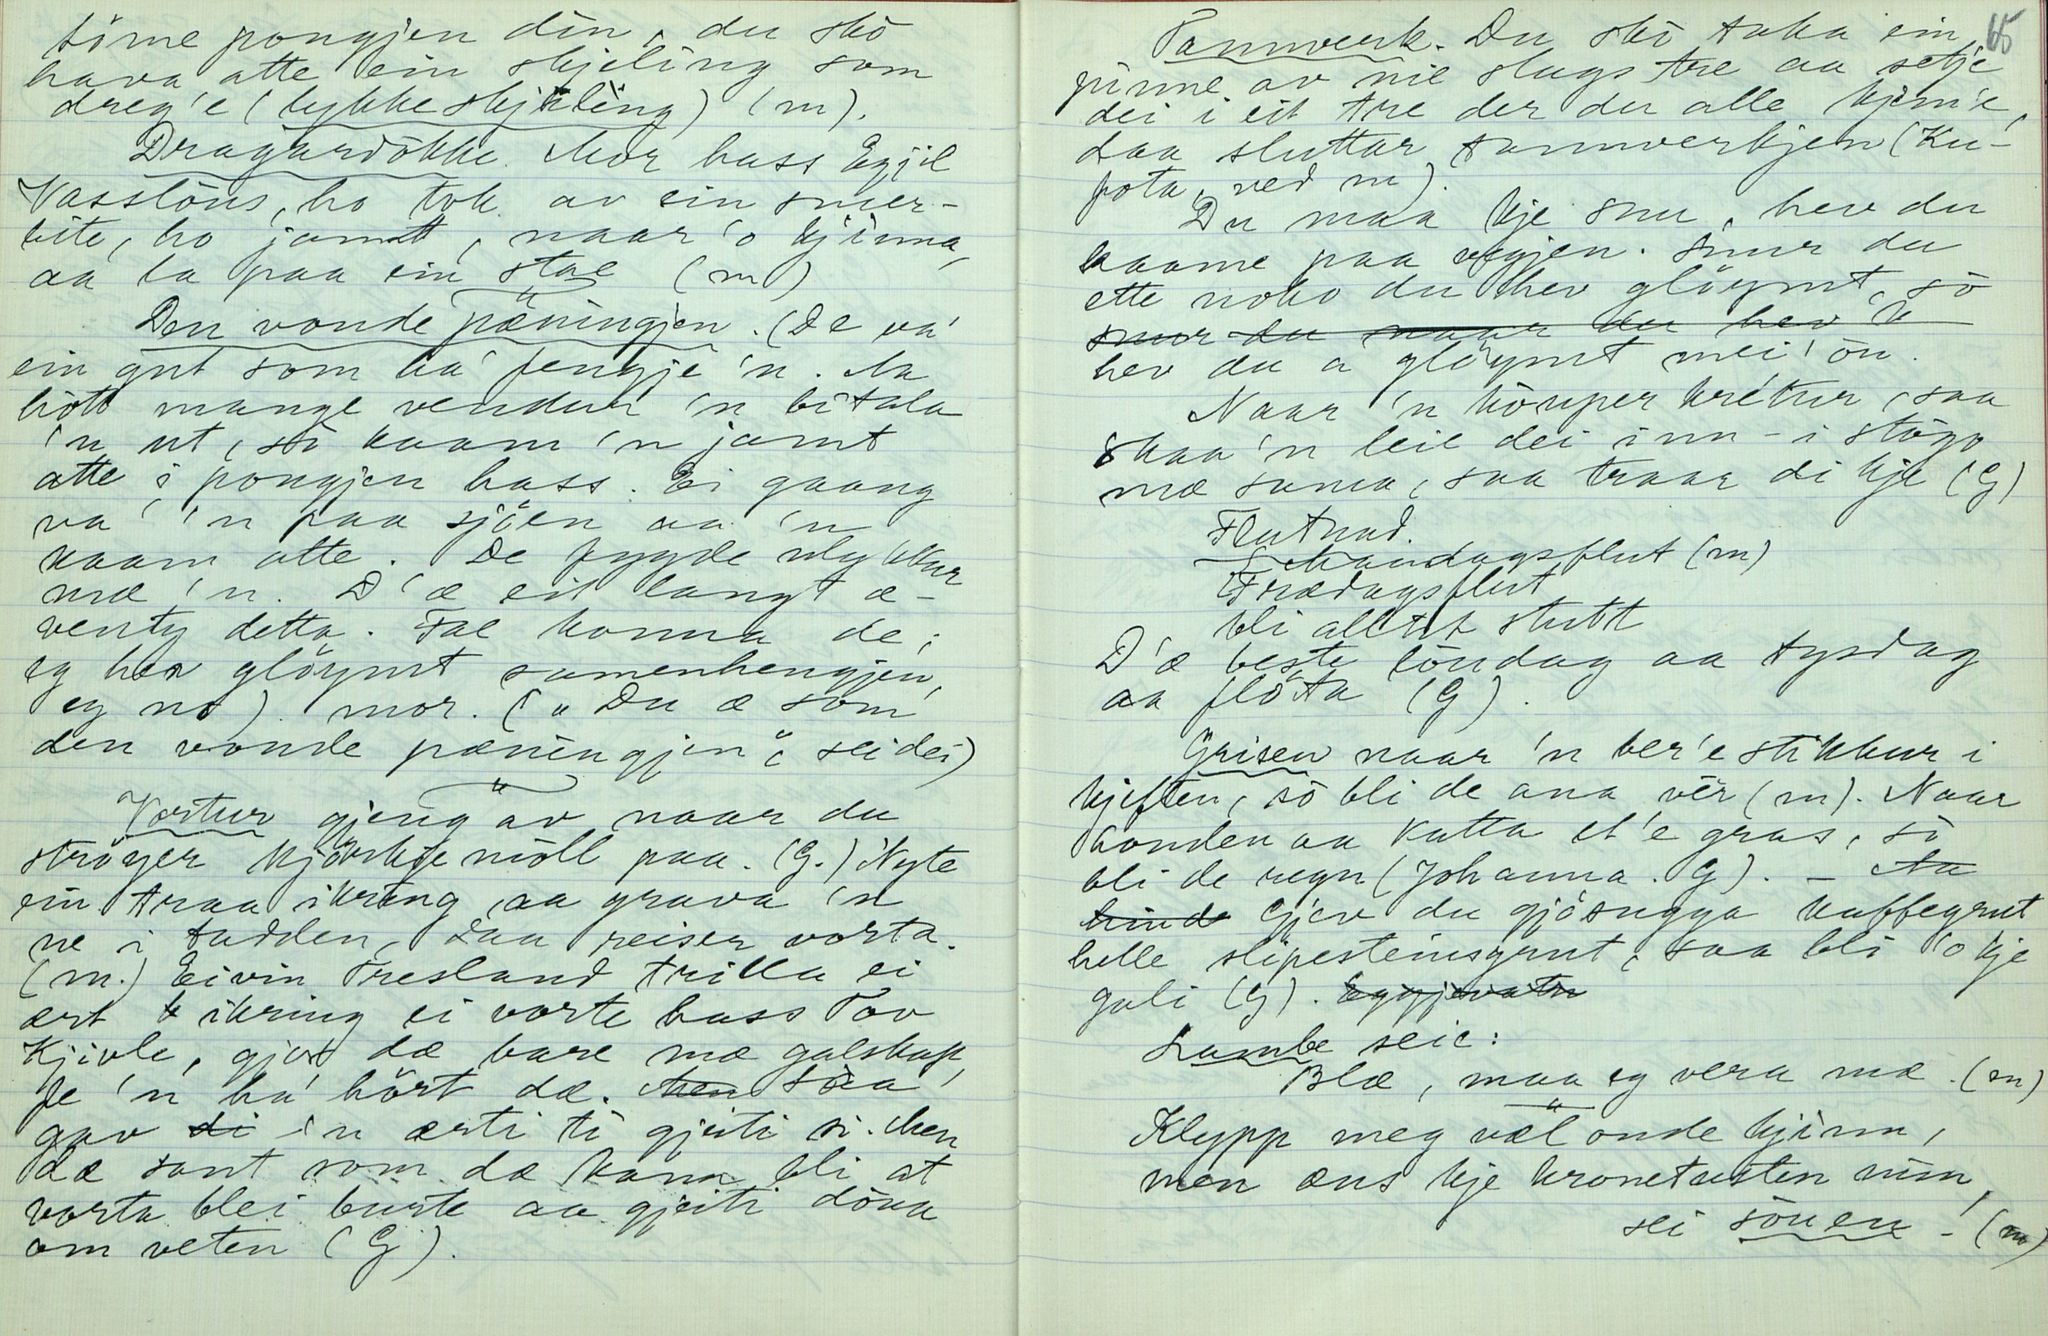 töme pongjen din, du skò
hava atte ein skjeling som
dreg'e (lykkeskjelling) (m).
Dragardòkke. Mor hass Egjil
Vasslöus, ho tok av ein smør-
bite, ho jamt, naar 'o kjinna,
aa la paa ein stae (m)
Den vonde pæningjen. (De va'
ein gut som ha' fengje 'n. Aa
hòtt mange vendur 'n bitala
'n ut, sò kaam 'n jamt
atte i pongjen hass. Ei gaang
va' 'n paa sjöen aa 'n
kaam atte. De fygde ulykkur
mæ 'n. D'æ eit langt æ-
venty detta. Tal konna de;
eg hev glöymt samenhengjen,
eg no). mor. („Du æ som
den vonde pæningjen", sei dei)
Vortur gjeng av naar du
ströyer kjörkjemòll paa. (G.) Nyte
ein traa ikring, aa grava 'n
ne i tadden, daa reiser vorta.
(m.) Eivin Tresland trilla ei
ært ikring ei vorte hass Tov
Kjivle, gjer dæ bare mæ galskap,
fe 'n ha' hört dæ. Men saa
gav di 'n ærti ti gjeiti si. Men
dæ sant som dæ kann bli at
vorta blei burte aa gjeiti döua
om veten (G).
65
Tannverk. Du skò taka ein
pinne av nie slags tre aa setje
dei i eit tre der du alle kjem'e,
daa sluttar tannverkjen (Ku-
fota, ved m).
Du maa kje snu, hev du
kaame paa vegjen. Snur du
ette noko du hev glöymt, sò
snur du naar du hev
hev du a glöymt mei' òn.
Naar 'n köuper krétur, saa
skaa 'n leie dei inn-i stògo
mæ sama, saa traar di kje (G)
Flutnad.
Mandagsflut (m)
Frædagsflut
bli alltit stutt
D'æ beste löndag aa tysdag
aa flöta (G).
Grisen naar 'n ber'e stikkur i
kjeften, sò bli de ana vêr (m). Naar
honden aa katta et'e gras, sò
bli de regn (Johanna. G). – Aa
hinde Gjev du gjösugga kaffegrut
helle slipesteinsgrut, saa bli 'o kje
gali (G).
Lambe seie:
Blæ, maa eg vera mæ. (m)
Klypp meg væl onde kjinn,
men æns kje kronetusten min,
sei söuen! (m)